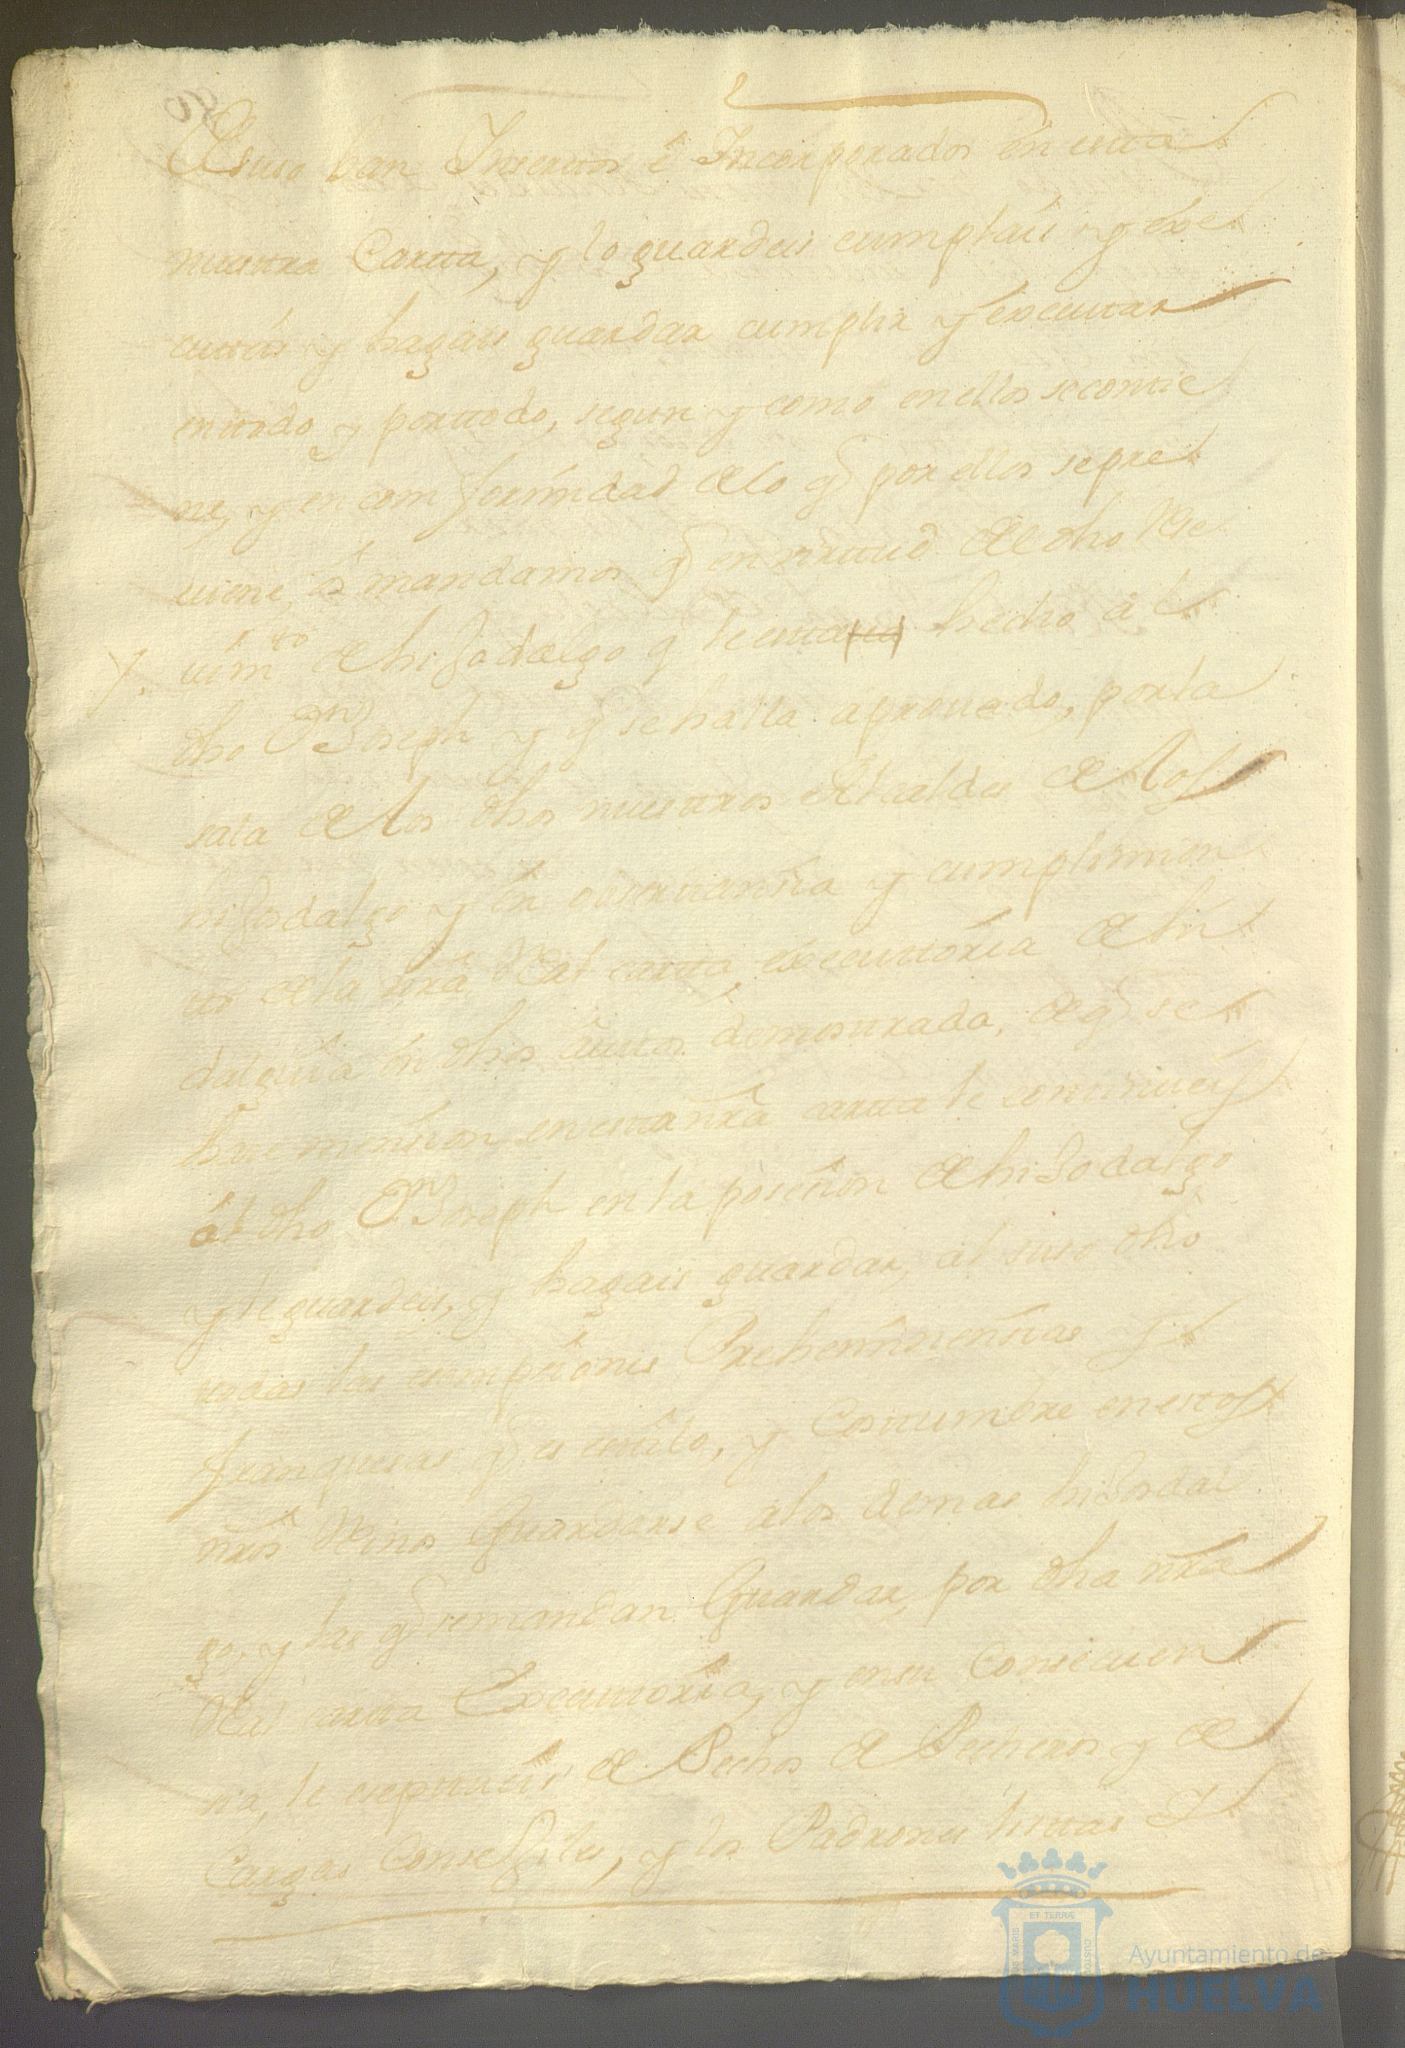 Desuso ban Insertos é Incorporados en esta
nuestra Carta, y lo guardeis cumplais y exe
cuteis y hagais guardar cumplir y executar
entodo y portodo, segun y como enellos secontie
ne, y en comformidad delo q̃ por ellos sepre
uiene, os mandamos q̃ en virtud de dho Re
uim.to de hijodalgo q̃ le esta hecho al
dho Dn Joseph y q̃ sehalla aprouado, porla
sala de los dhos nuestros Alcaldes de los
hijosdalgo y en obseruansia y cumplimien
to dela nrã Real carta executoria de hi
dalguia en dhos autos demostrada, de q̃ se
hase mension enesta nrã carta le continueis
al dho Dn Joseph en la posesion de hijodalgo
y le guardeis, y hagais guardar, al suso dho
todas las esempsiones Prehemìnensias y
franquesas q̃ es estilo, y Costumbre enestos
nrõs Rinos Guardarse alos demas hijosdal
go, y las q̃ semandan Guardar por dha nrã
Real carta Executoria, y ensu Consecuen
sia, le esceptueis de Pechos de Pecheros y de
Cargas Consejiles, y los Padrones listas y
ET TERRA
Ayuntamiento de
HUELVA